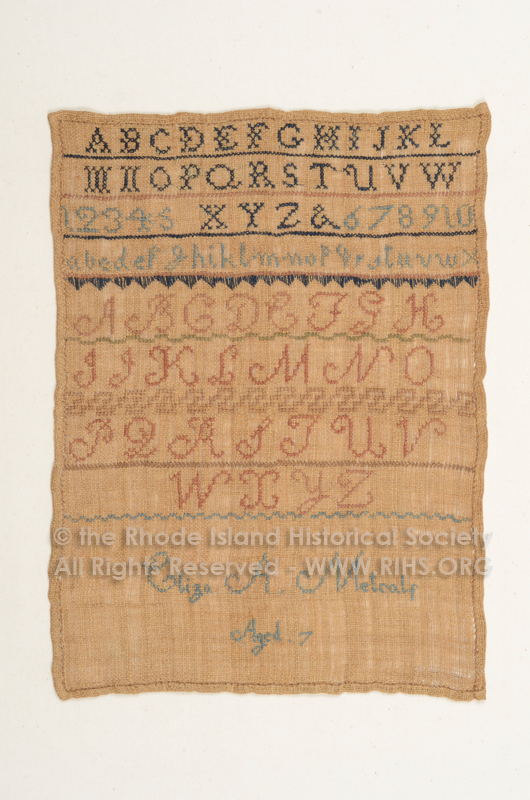 ABCDEFGHIJKL
MNOPQRSTUVW
12345 XYZ& 678910
abcdefghiklmnopqrstuvwx
ABCDEFGH
IJKLMNO
PQRSTUV
WXYZ
© the Rhode Island Historical Society
All Rights Reserved - WWW.RIHS.ORG
Eliza A. Metcalf
Aged. 7